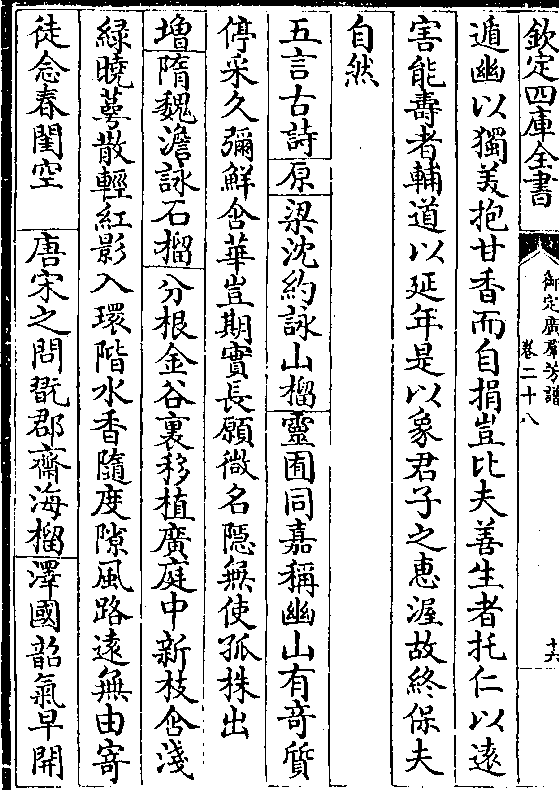 欽定四庫全書
御定廣羣芳譜
卷二十八
十六
遁幽以獨美抱甘香而自捐豈比夫善生者托仁以遠
害能壽者輔道以延年是以象君子之惠渥故終保夫
自然
五言古詩原梁沈約詠山榴靈囿同嘉稱幽山有奇質
停采久彌鮮含華豈期實長願微名隱無使孤株出
增隋魏澹詠石榴分根金谷裏移植廣庭中新枝含淺
緑曉萼散輕紅影入環階水香隨度隙風路遠無由寄
徒念春閨空　唐宋之問翫郡齋海榴澤國韶氣早開